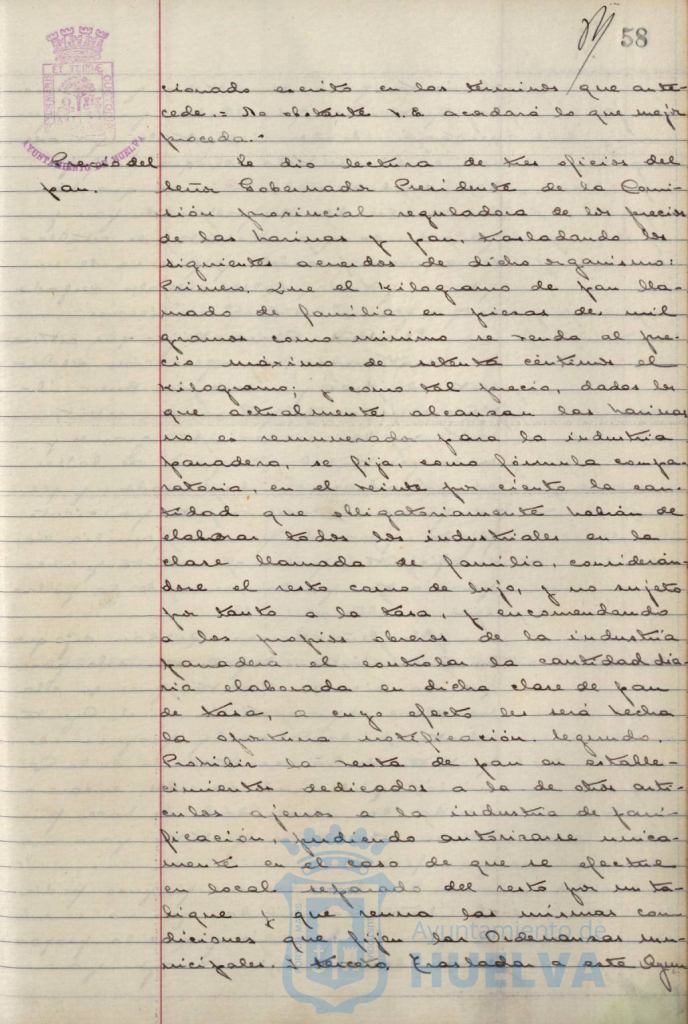 58
cionado escrito en los terminos que ante-
cede.= No obstante V.E. acordará lo que mejor
proceda.-
Precio del
pan.
Se dio lectura de tres oficios del
Señor Gobernador Presidente de la Comi-
sión provincial reguladora de los precios
de las harinas y pan, trasladando los
siguientes acuerdos de dicho organismo:
Primero. Que el kilogramo de pan lla-
mado de familia en piezas de mil
gramos como minimo se venda al pre-
cio máximo de setenta céntimos el
kilogramo; y como tal precio, dados los
que actualmente alcanzan las harinas
no es remunerador para la industria
panadera, se fija, como fórmula compa-
ratoria, en el veinte por ciento la can-
tidad que obligatoriamente habrán de
elaborar todos los industriales en la
clase llamada de familia, considerán-
dose el resto como de lujo, y no sujeto
por tanto a la tasa, y encomendando
a los propios obreros de la industria
panadera el controlar la cantidad dia-
ria elaborada en dicha clase de pan
de tasa, a cuyo efecto les será hecha
la oportuna notificación. Segundo.
Prohibir la venta de pan en estable-
cimientos dedicados a la de otros arti-
culos ajenos a la industria de pani-
ficación, pudiendo autorizarse unica-
mente en el caso de que se efectue
en local separado del resto por un ta-
bique y que reuna las mismas con-
diciones que fijen las Ordenanzas mu-
nicipales. Y tercero, Trasladar a este Ayun
AYUNTAMIENTO DE HUELVA
Ayuntamiento de
HUELVA